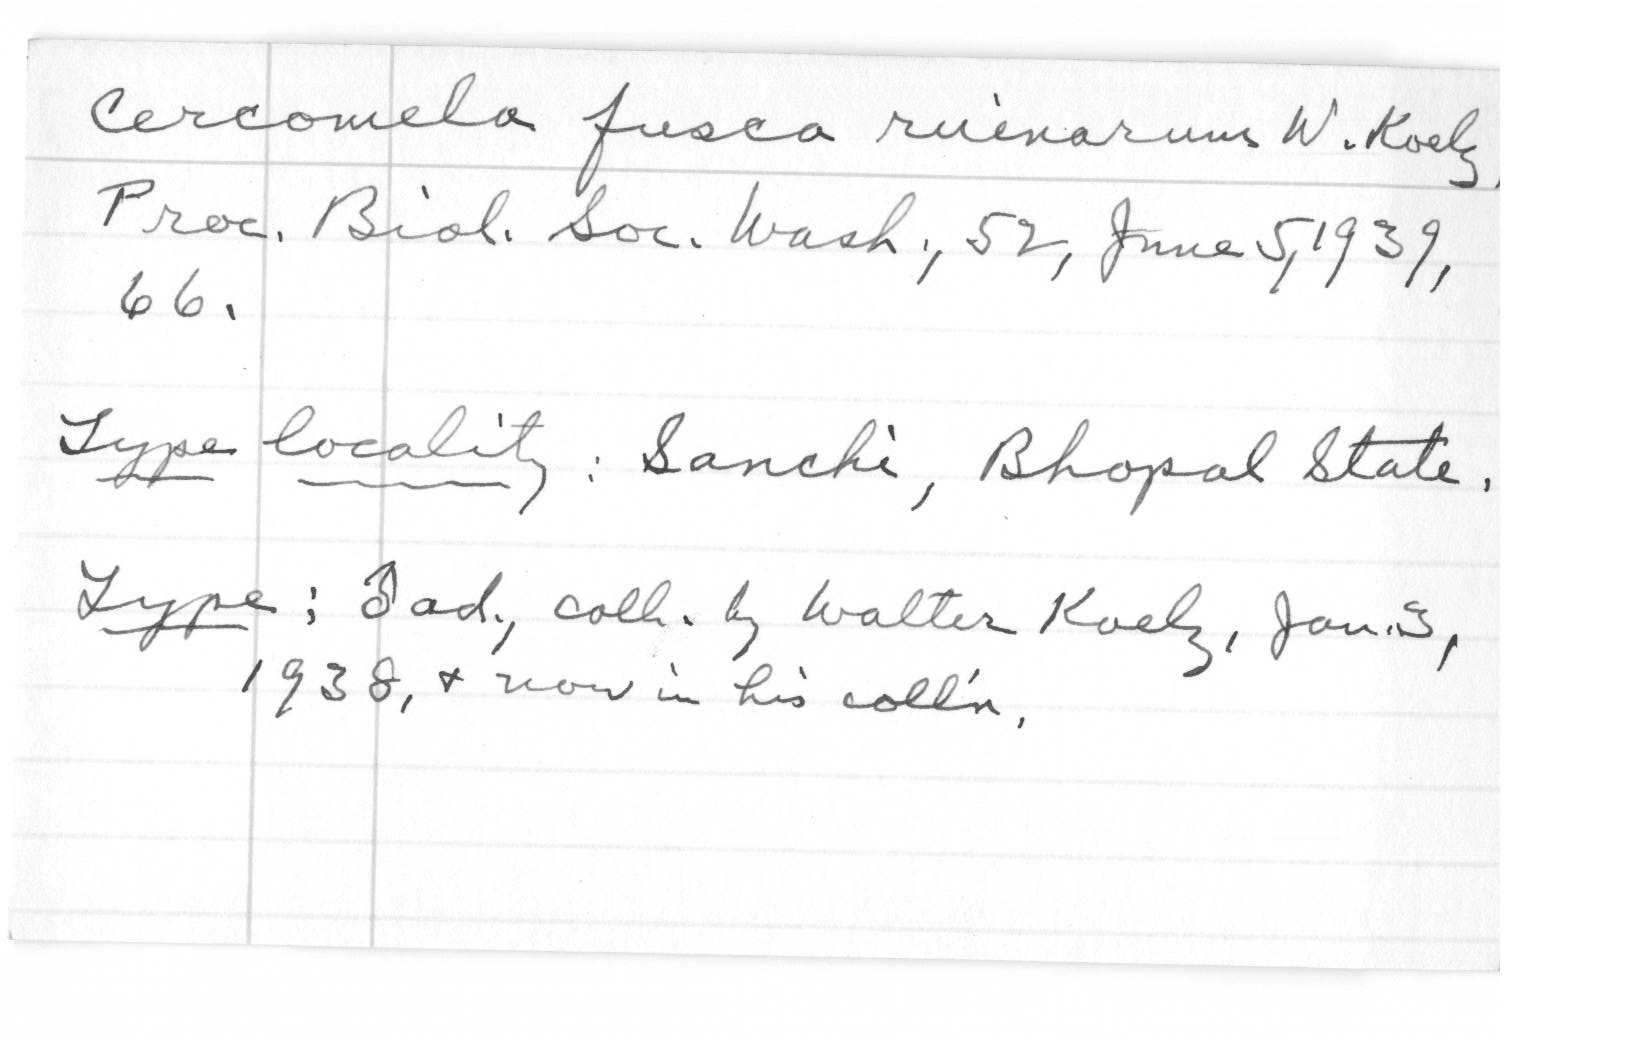 Cercomela fusca ruinarum W. Koelz,
Proc. Biol. Soc. Wash., 52, June 5, 1939,
66.
Type locality: Sanchi, Bhopal State.
Type: ♂ ad., coll. by Walter Koelz, Jan. 3,
1938, & now in his coll'n.